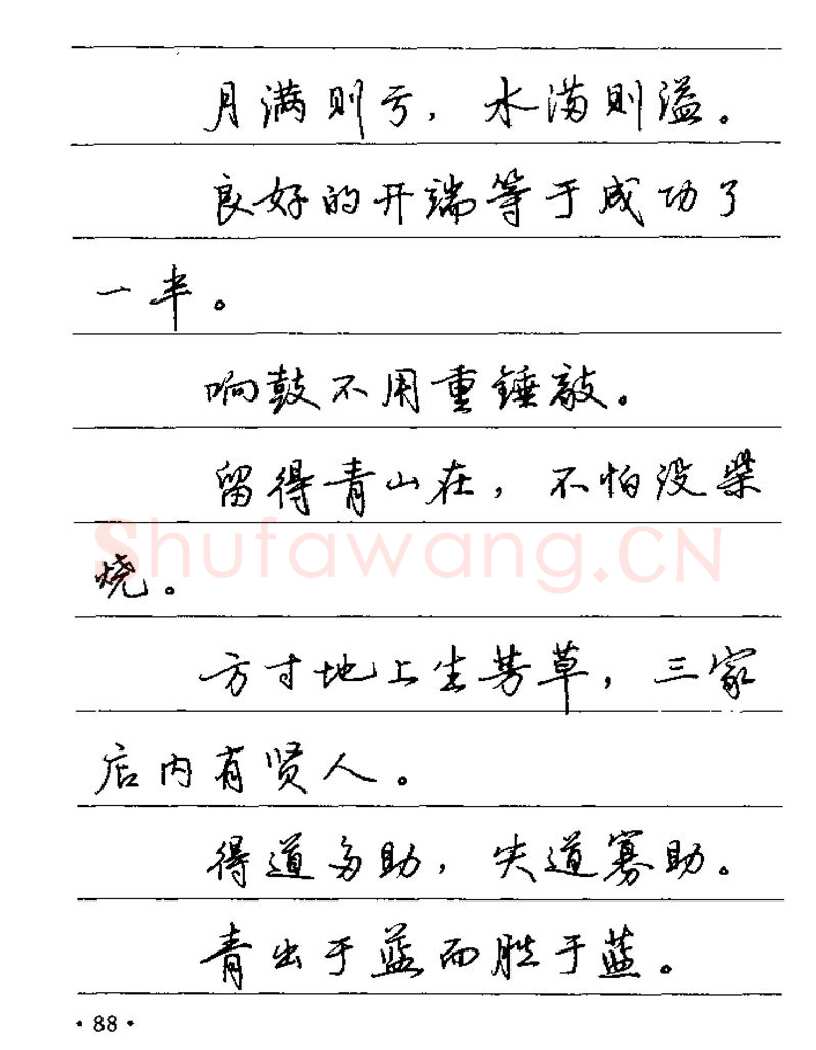 月满则亏，水满则溢。
良好的开端等于成功了
一半。
响鼓不用重锤敲。
留得青山在，不怕没柴
烧。
Shufawang.CN
方寸地上生芳草，三家
店内有贤人。
得道多助，失道寡助。
青出于蓝而胜于蓝。
·88·